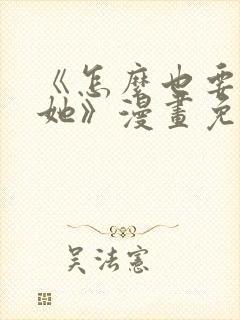 《怎麼也要
她》漫畫免
吴法憲